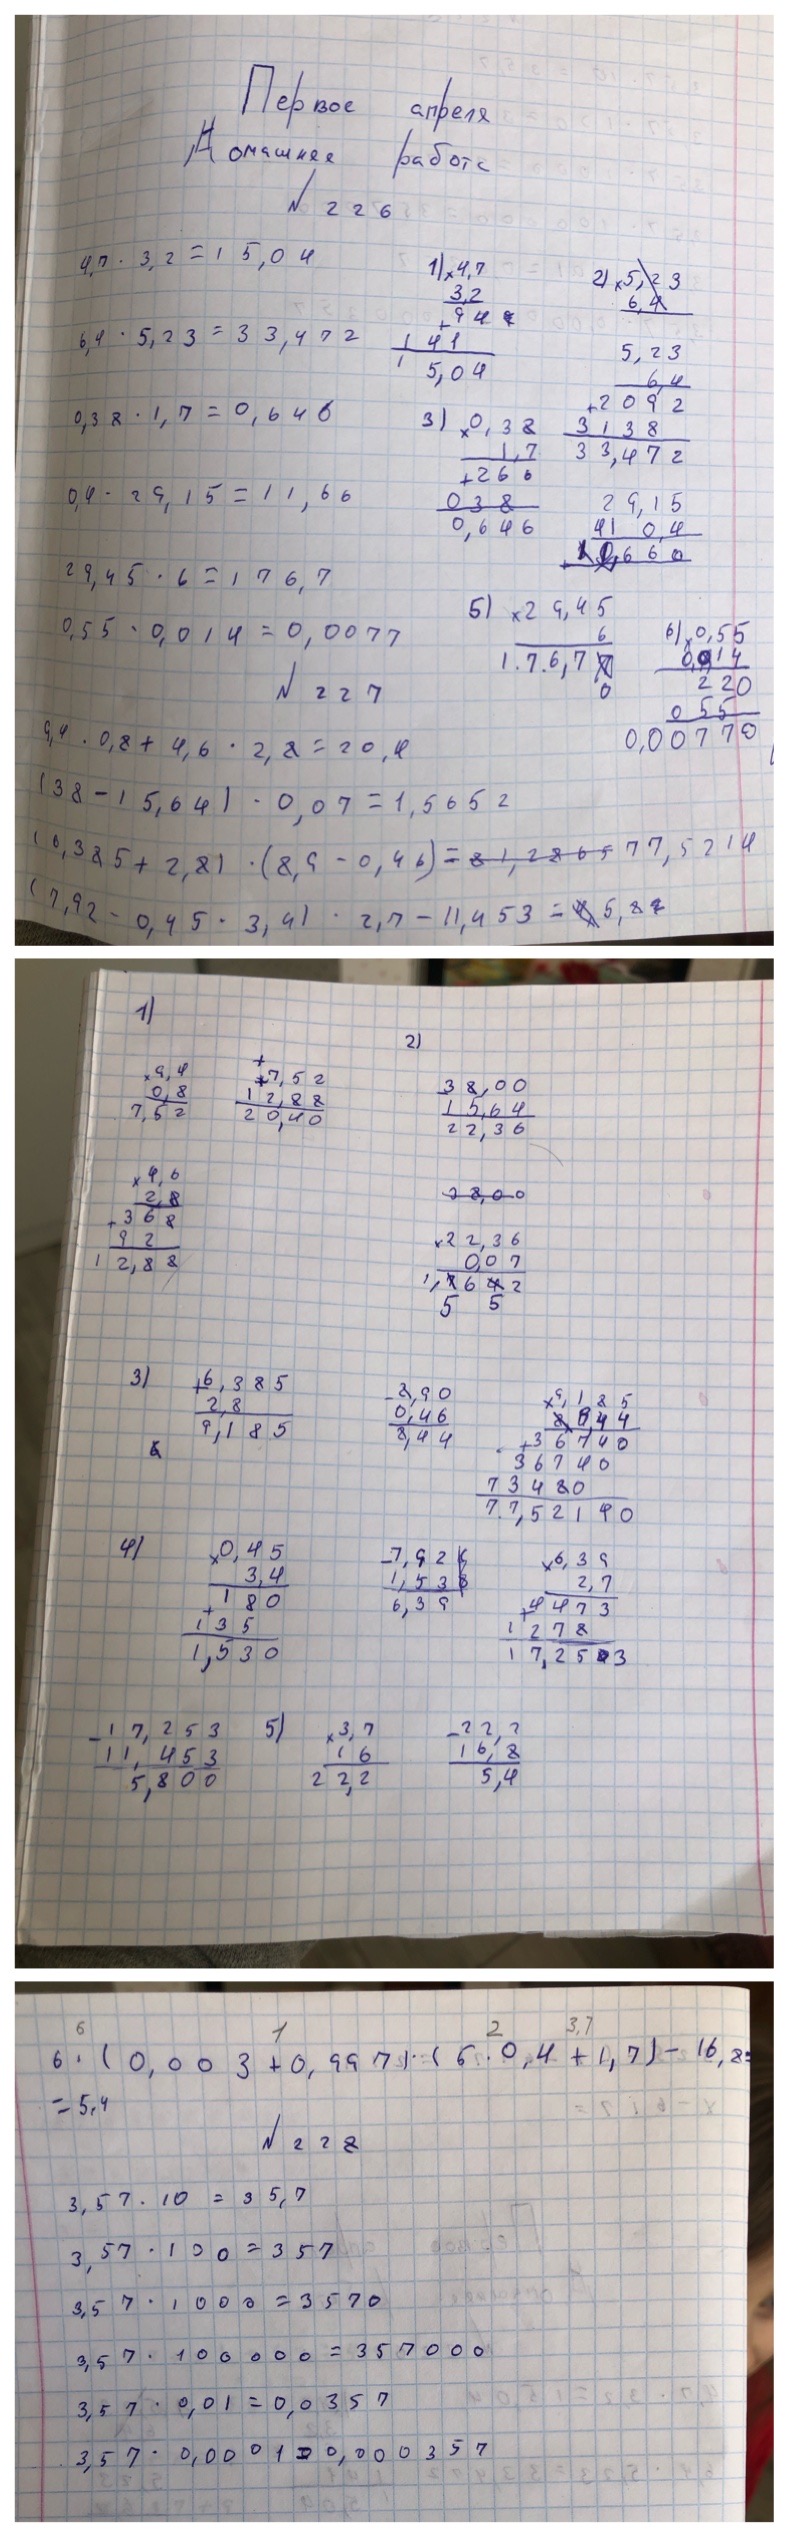 Первое апреля
Домашнее работа
№ 226
4,7 · 3,2 = 15,04
6,4 · 5,23 = 33,472
0,38 · 1,7 = 0,646
0,4 · 29,15 = 11,66
29,45 · 6 = 176,7
0,55 · 0,014 = 0,0077
1) ×4,7
3,2
+94
141
15,04
2) ×5,23
6,4
5,23
6,4
+2092
3138
33,472
3) ×0,38
1,7
+266
038
0,646
29,15
0,4
660
5) ×29,45
6
176,7
0
6) ×0,55
0,014
220
055
0,00770
№ 227
9,4 · 0,8 + 4,6 · 2,8 = 20,4
(38 - 15,64) · 0,07 = 1,5652
(6,385 + 2,8) · (8,9 - 0,46) = 81,2865 77,5214
(7,92 - 0,45 · 3,4) · 2,7 - 11,453 = 5,8
1)
×9,4
0,8
7,52
+7,52
12,88
20,40
×4,6
2,8
+368
92
12,88
2)
38,00
15,64
22,36
38,00
×22,36
0,07
1,7642
5 5
3)
+6,385
2,8
9,185
-8,90
0,46
8,44
×9,185
8,44
+36740
36740
73480
77,52140
4)
×0,45
3,4
+180
135
1,530
-7,92
1,53
6,39
×6,39
2,7
+4473
1278
17,253
-17,253
11,453
5,800
5)
×3,7
16
22,2
-22,2
16,8
5,4
6 1 2 3,7
6 · (0,003 + 0,997) · (5 · 0,4 + 1,7) - 16,8=
= 5,4
№ 228
3,57 · 10 = 35,7
3,57 · 100 = 357
3,57 · 1000 = 3570
3,57 · 100000 = 357000
3,57 · 0,01 = 0,0357
3,57 · 0,0001 = 0,000357